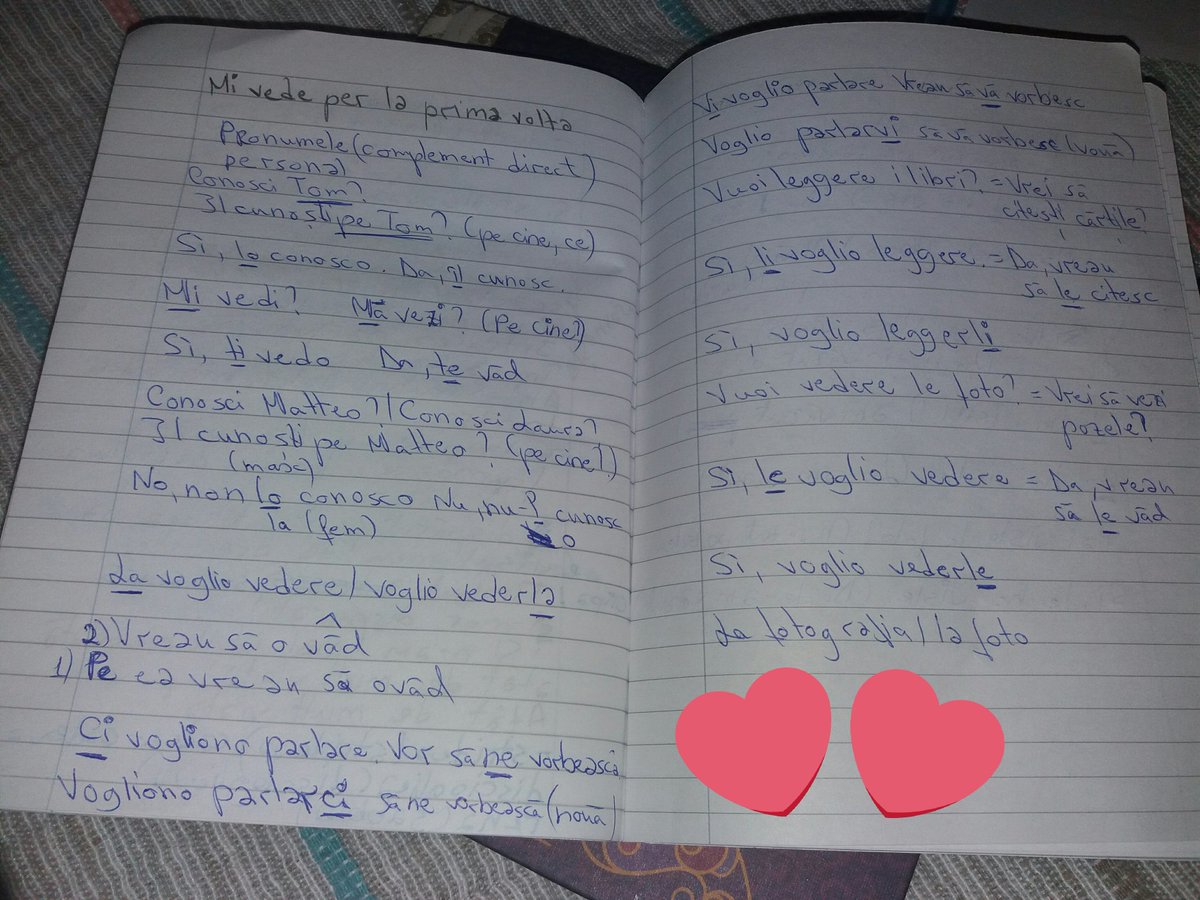 Mi vede per la prima volta
Pronumele (complement direct)
persona)
Conosci Tom?
Îl cunoști pe Tom? (pe cine, ce)
Sì, lo conosco. Da, îl cunosc.
Mi vedi? Mă vezi? (Pe cine?)
Sì, ti vedo Da, te văd
Conosci Matteo?/Conosci Laura?
Îl cunoști pe Matteo? (pe cine?)
(masc)
No, non lo conosco Nu, nu-l cunosc
la (fem) o
La voglio vedere/voglio vederla
2) Vreau să o văd
1) Pe ea vreau să o văd
Ci vogliono parlare. Vor să ne vorbească
Vogliono parlarci să ne vorbească (nouă)
Vi voglio parlare Vreau să vă vorbesc
Voglio parlarvi să vă vorbesc (vouă)
Vuoi leggere i libri? = Vrei să
citești cărțile?
Sì, li voglio leggere. = Da, vreau
să le citesc
Sì, voglio leggerli
Vuoi vedere le foto? = Vrei să vezi
pozele?
Sì, le voglio vedere = Da, vreau
să le văd
Sì, voglio vederle
La fotografia/la foto